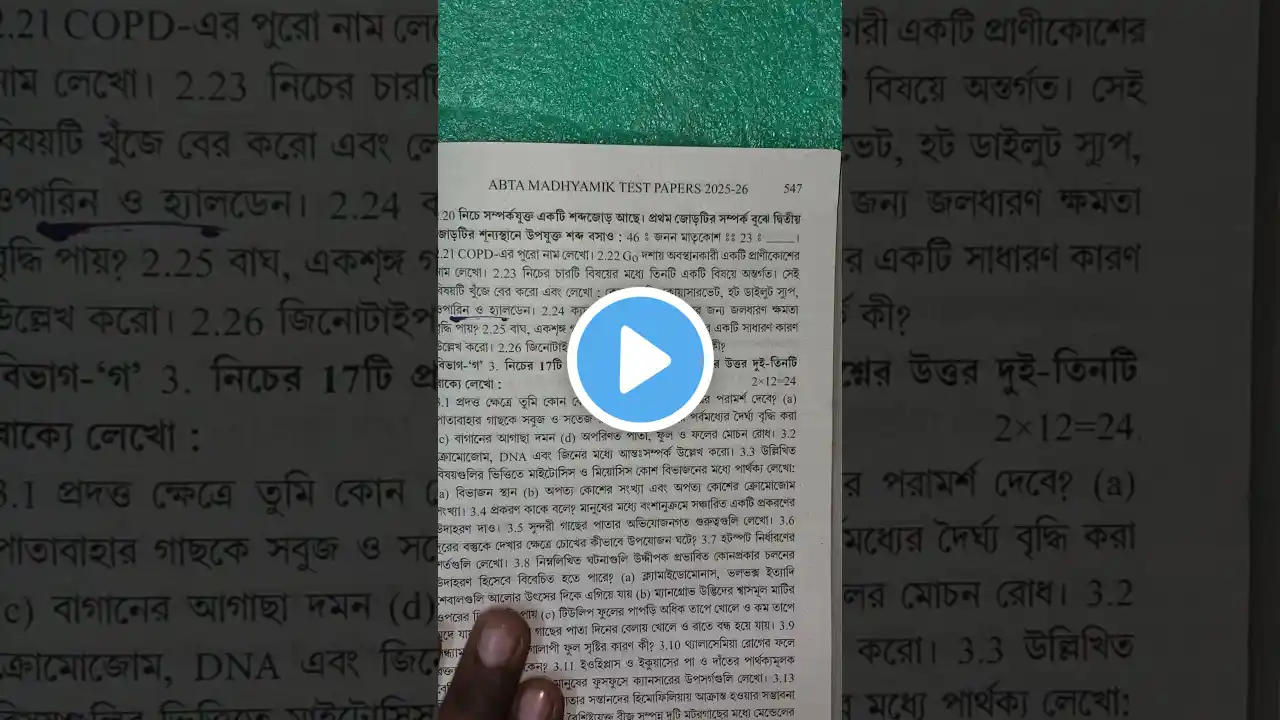 ABTA MADHYAMIK TEST PAPERS 2025-26 547
.20 নিচে সম্পর্কযুক্ত একটি শব্দজোড় আছে। প্রথম জোড়টির সম্পর্ক বুঝে দ্বিতীয়
জোড়টির শূন্যস্থানে উপযুক্ত শব্দ বসাও : 46 ঃ জনন মাতৃকোশ ঃঃ 23 ঃ ____।
2.21 COPD-এর পুরো নাম লেখো। 2.22 G₀ দশায় অবস্থানকারী একটি প্রাণীকোশের
নাম লেখো। 2.23 নিচের চারটি বিষয়ের মধ্যে তিনটি একটি বিষয়ে অন্তর্গত। সেই
বিষয়টি খুঁজে বের করো এবং লেখো : কোয়াসারভেট, হট ডাইলুট স্যুপ,
ওপারিন ও হ্যালডেন। 2.24 জন্য জলধারণ ক্ষমতা
বৃদ্ধি পায়? 2.25 বাঘ, একশৃঙ্গ একটি সাধারণ কারণ
উল্লেখ করো। 2.26 জিনোটাইপ কী?
বিভাগ-‘গ’ 3. নিচের 17টি উত্তর দুই-তিনটি
বাক্যে লেখো : 2×12=24
.1 প্রদত্ত ক্ষেত্রে তুমি কোন পরামর্শ দেবে? (a)
পাতাবাহার গাছকে সবুজ ও সতেজ পর্বমধ্যের দৈর্ঘ্য বৃদ্ধি করা
c) বাগানের আগাছা দমন (d) অপরিণত পাতা, ফুল ও ফলের মোচন রোধ। 3.2
ক্রোমোজোম, DNA এবং জিনের মধ্যে আন্তঃসম্পর্ক উল্লেখ করো। 3.3 উল্লিখিত
বিষয়গুলির ভিত্তিতে মাইটোসিস ও মিয়োসিস কোশ বিভাজনের মধ্যে পার্থক্য লেখো:
a) বিভাজন স্থান (b) অপত্য কোশের সংখ্যা এবং অপত্য কোশের ক্রোমোজোম
সংখ্যা। 3.4 প্রকরণ কাকে বলে? মানুষের মধ্যে বংশানুক্রমে সঞ্চারিত একটি প্রকরণের
উদাহরণ দাও। 3.5 সুন্দরী গাছের পাতার অভিযোজনগত গুরুত্বগুলি লেখো। 3.6
দূরের বস্তুকে দেখার ক্ষেত্রে চোখের কীভাবে উপযোজন ঘটে? 3.7 হটস্পট নির্ধারণের
শর্তগুলি লেখো। 3.8 নিম্নলিখিত ঘটনাগুলি উদ্দীপক প্রভাবিত কোনপ্রকার চলনের
উদাহরণ হিসেবে বিবেচিত হতে পারে? (a) ক্ল্যামাইডোমোনাস, ভলভক্স ইত্যাদি
শৈবালগুলি আলোর উৎসের দিকে এগিয়ে যায় (b) ম্যানগ্রোভ উদ্ভিদের শ্বাসমূল মাটির
ওপরের পায় (c) টিউলিপ ফুলের পাপড়ি অধিক তাপে খোলে ও কম তাপে
গাছের পাতা দিনের বেলায় খোলে ও রাতে বন্ধ হয়ে যায়। 3.9
গোলাপী ফুল সৃষ্টির কারণ কী? 3.10 থ্যালাসেমিয়া রোগের ফলে
কেন? 3.11 ইওহিপ্পাস ও ইকুয়াসের পা ও দাঁতের পার্থক্যমূলক
মানুষের ফুসফুসে ক্যানসারের উপসর্গগুলি লেখো। 3.13
সন্তানদের হিমোফিলিয়ায় আক্রান্ত হওয়ার সম্ভাবনা
বৈশিষ্ট্যযুক্ত বীজ সম্পন্ন দুটি মটরগাছের মধ্যে মেন্ডেলের